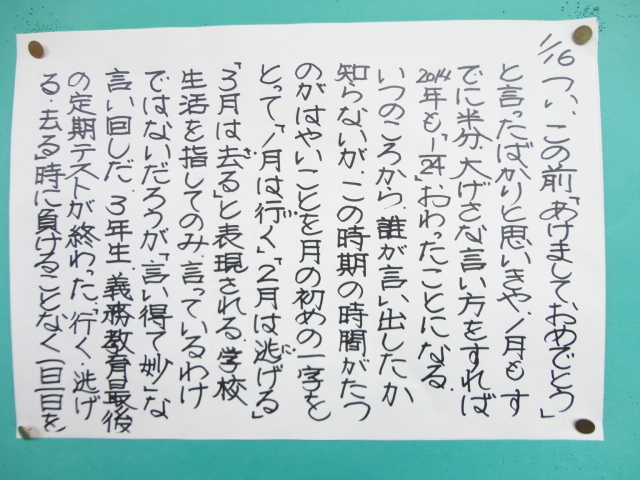 1/16 つい、この前「あけましておめでとう」
と言ったばかりと思いきや、1月もす
でに半分、大げさな言い方をすれば
2014年も「1/24」おわったことになる
いつのころから、誰が言い出したか
知らないが、この時期の時間がたつ
のがはやいことを月の初めの一字を
とって、「1月は行く」「2月は逃げる」
「3月は去る」と表現される。学校
生活を指してのみ、言っているわけ
ではないだろうが「言い得て妙」な
言い回しだ。3年生、義務教育最後
の定期テストが終わった。「行く・逃げ
る・去る」時に負けることなく一日一日を